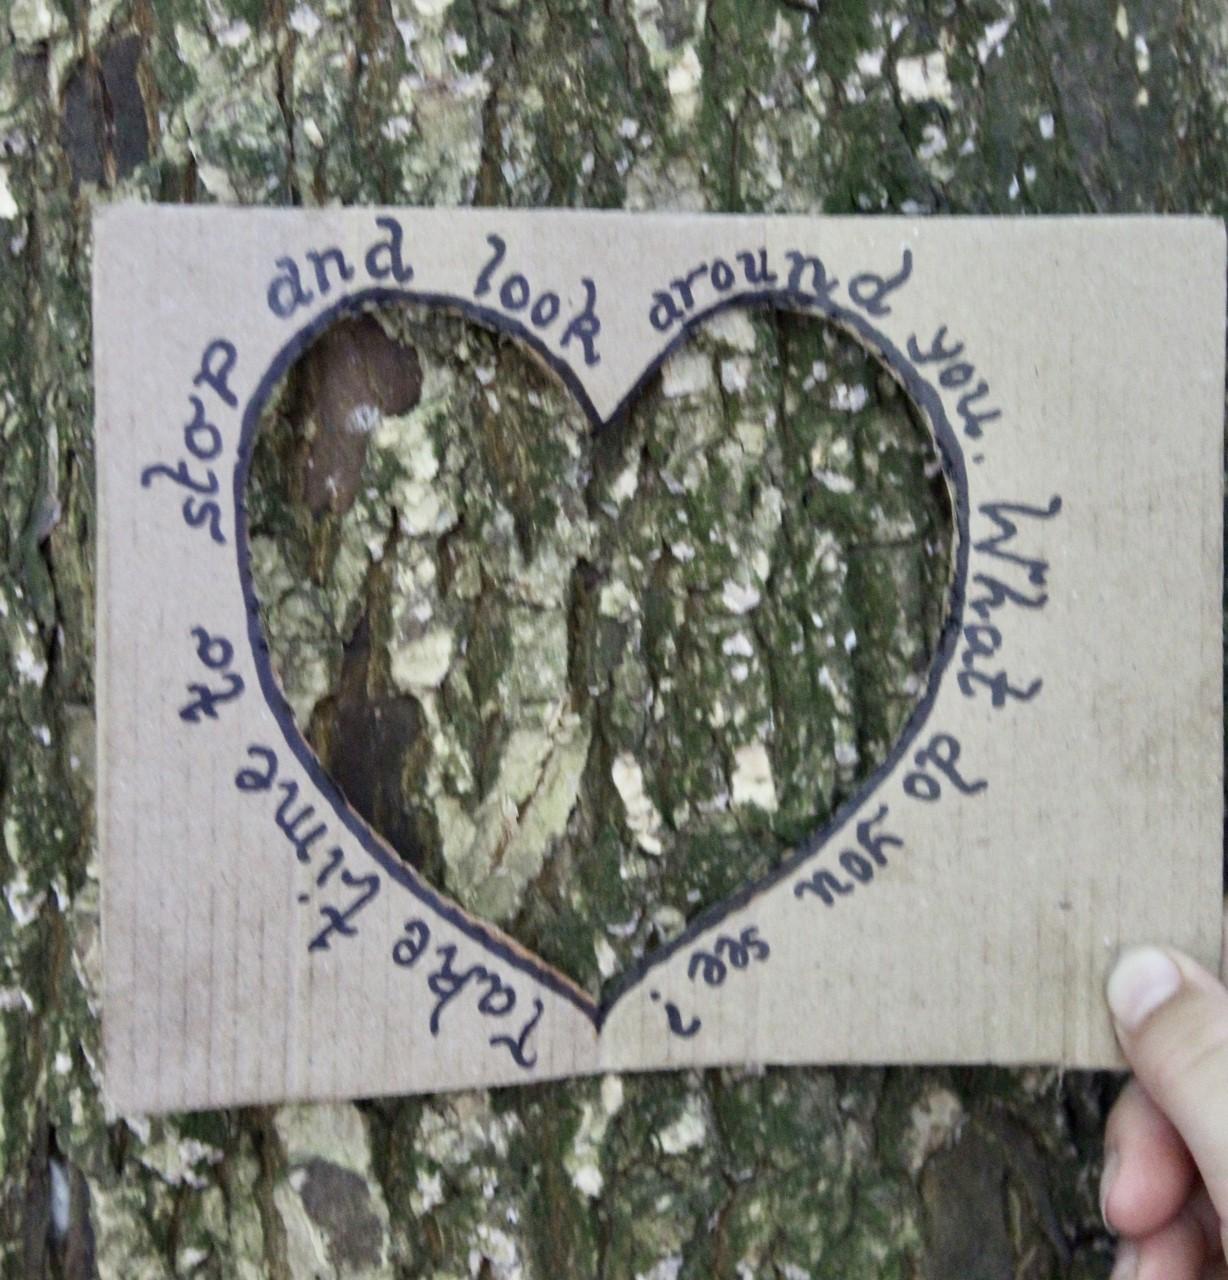 Take time to stop and look around you. What do you see?